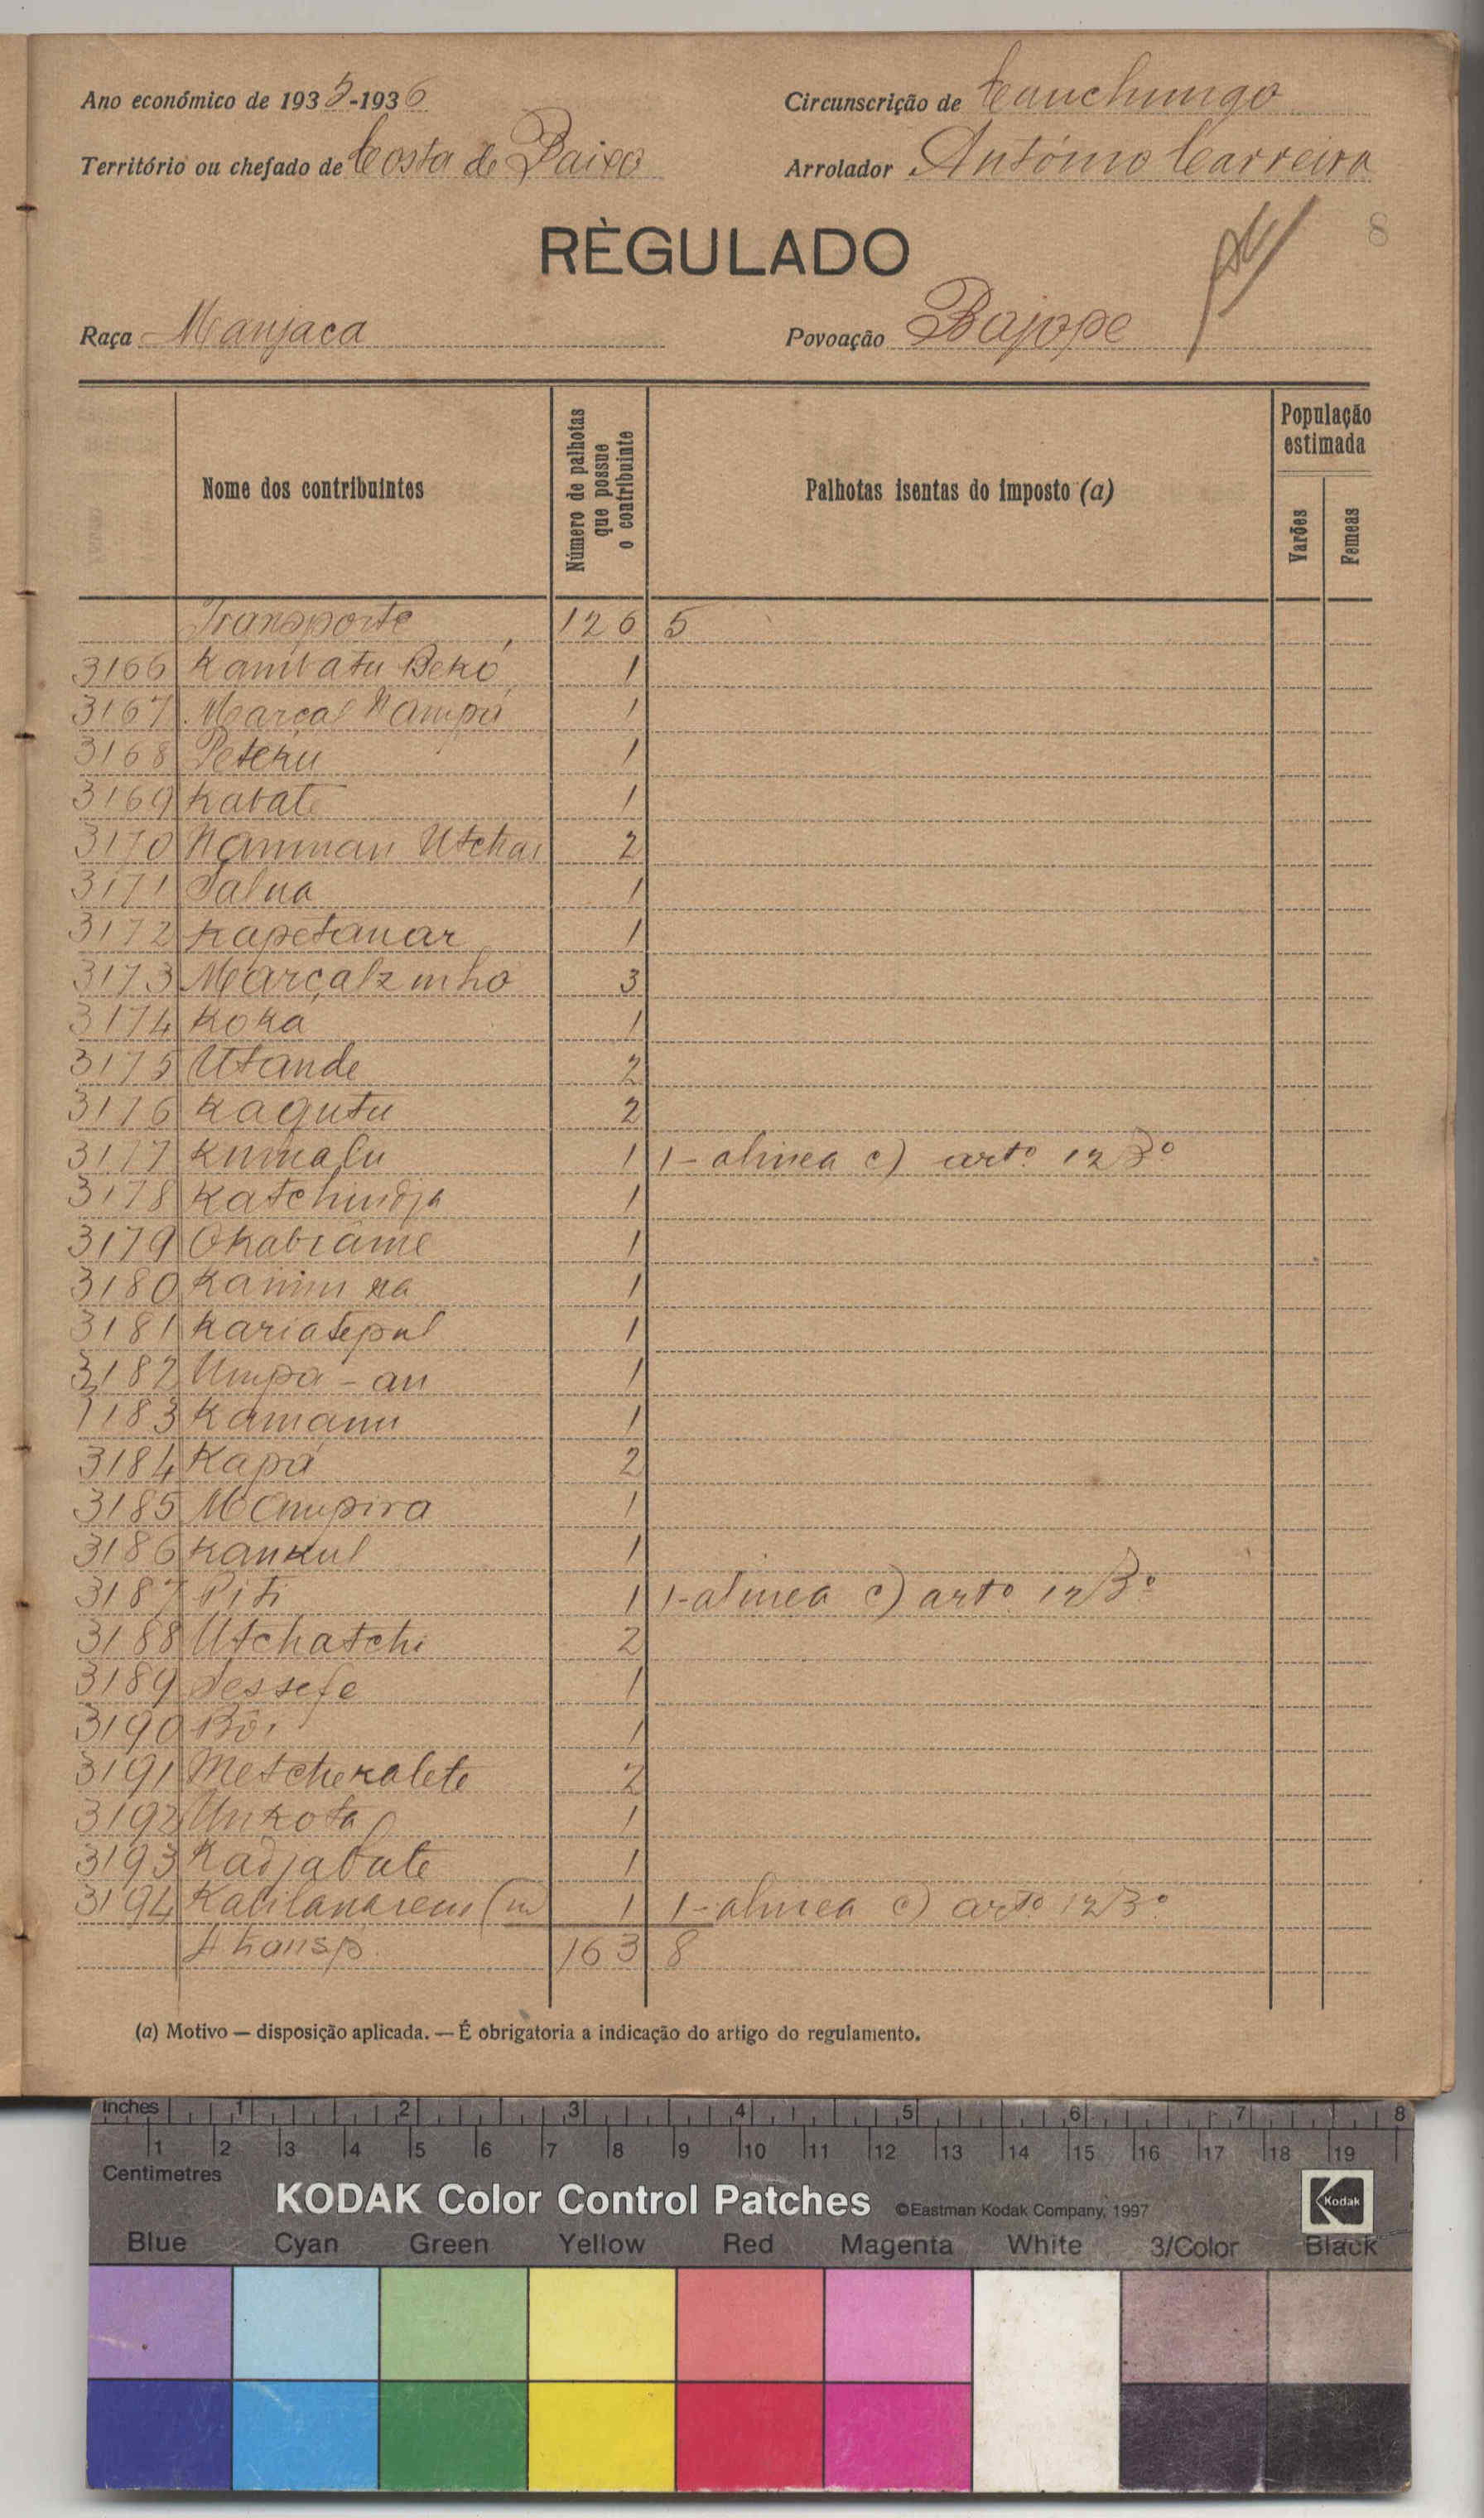 Ano económico de 1935-1936
Circunscrição de Canchungo
Território ou chefado de Costa de Baixo
Arrolador António Carreira
8
RÈGULADO
Raça Manjaca
Povoação Bajope
Nome dos contribuintes
Número de palhotas que possue o contribuinte
Palhotas isentas do imposto (a)
População estimada
Varões
Femeas
Transporte 126 5
3166 Kambatu Bekó 1
3167 Marçal Nampá 1
3168 Petchu 1
3169 Kabate 1
3170 Namman Utchai 2
3171 Salna 1
3172 Kapetanar 1
3173 Marçalzinho 3
3174 Koka 1
3175 Utande 2
3176 Kagutu 2
3177 1 1-alinea c) artº 123º
3178 Katchindja 1
3179 Okabiame 1
3180 1
3181 Kariatepul 1
3182 Umpa-an 1
1183 Kamanu 1
3184 Kapá 2
3185 Mampira 1
3186 Kankul 1
3187 Piti 1 1-alinea c) artº 123º
3188 Utchatchi 2
3189 Sessefe 1
3190 Bôi 1
3191 Metchekalete 2
3192 Unkota 1
3193 Kadjabate 1
3194 1 1-alinea c) artº 123º
A transp. 163 8
(a) Motivo — disposição aplicada. — É obrigatoria a indicação do artigo do regulamento.
Inches 1 2 3 4 5 6 7 8
1 2 3 4 5 6 7 8 9 10 11 12 13 14 15 16 17 18 19
Centimetres
KODAK Color Control Patches ©Eastman Kodak Company, 1997 Kodak
Blue Cyan Green Yellow Red Magenta White 3/Color Black